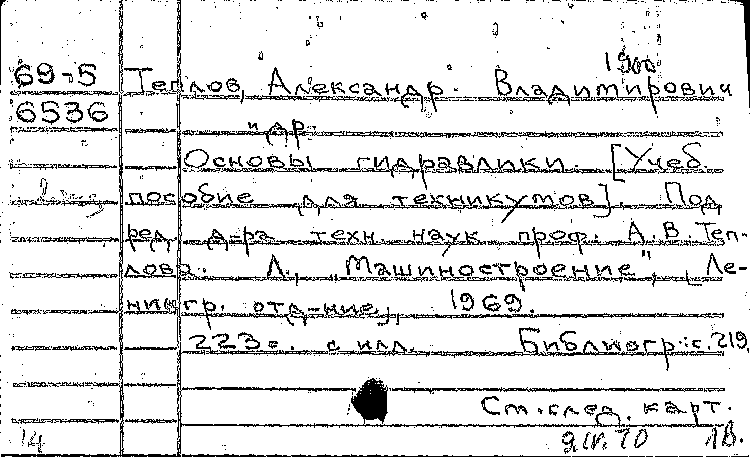 1900
69-5 Теплов, Александр Владимирович
6536
и др.
Основы гидравлики. [Учеб.
пособие для техникумов]. Под
ред. д-ра техн. наук проф. А.В. Теп-
лова. Л., "Машиностроение", [Ле-
нингр. отд-ние], 1969.
223 с. с илл. Библиогр: с. 219.
См. след. карт.
14 70 1В.